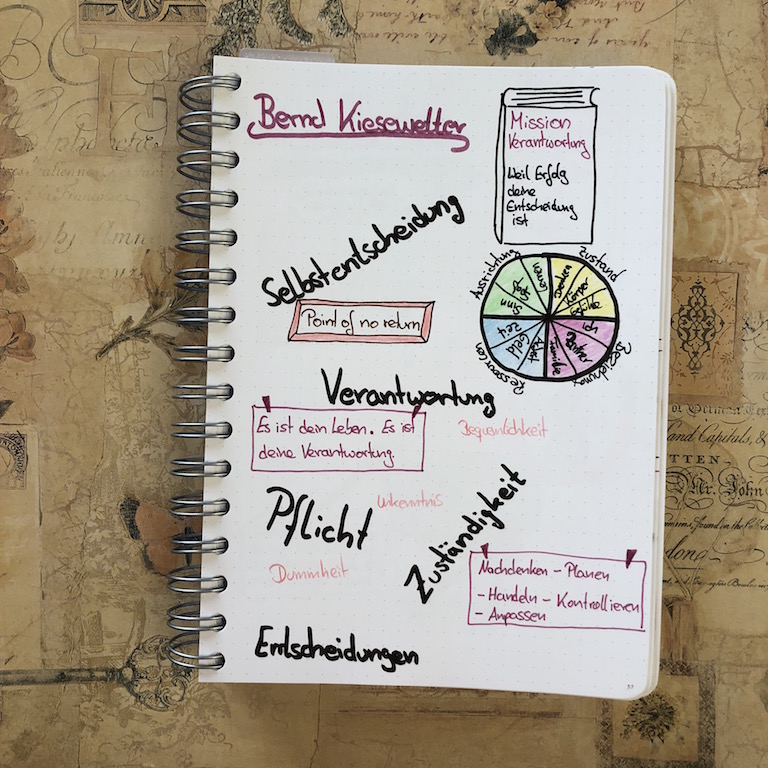 Bernd Kiesewetter
Mission
Verantwortung
Weil Erfolg
deine
Entscheidung
ist
Selbstentscheidung
Point of no return
Ausrichtung
Zustand
Beziehung
Ressourcen
Sinn
Lernen
Körper
Zeit
Geld
Familie
Verantwortung
Es ist dein Leben. Es ist
deine Verantwortung.
Bequemlichkeit
Pflicht
Unkenntnis
Zuständigkeit
Dummheit
Nachdenken - Planen
- Handeln - Kontrollieren
- Anpassen
Entscheidungen
and Capitals, &
TTEN.
Mr. John